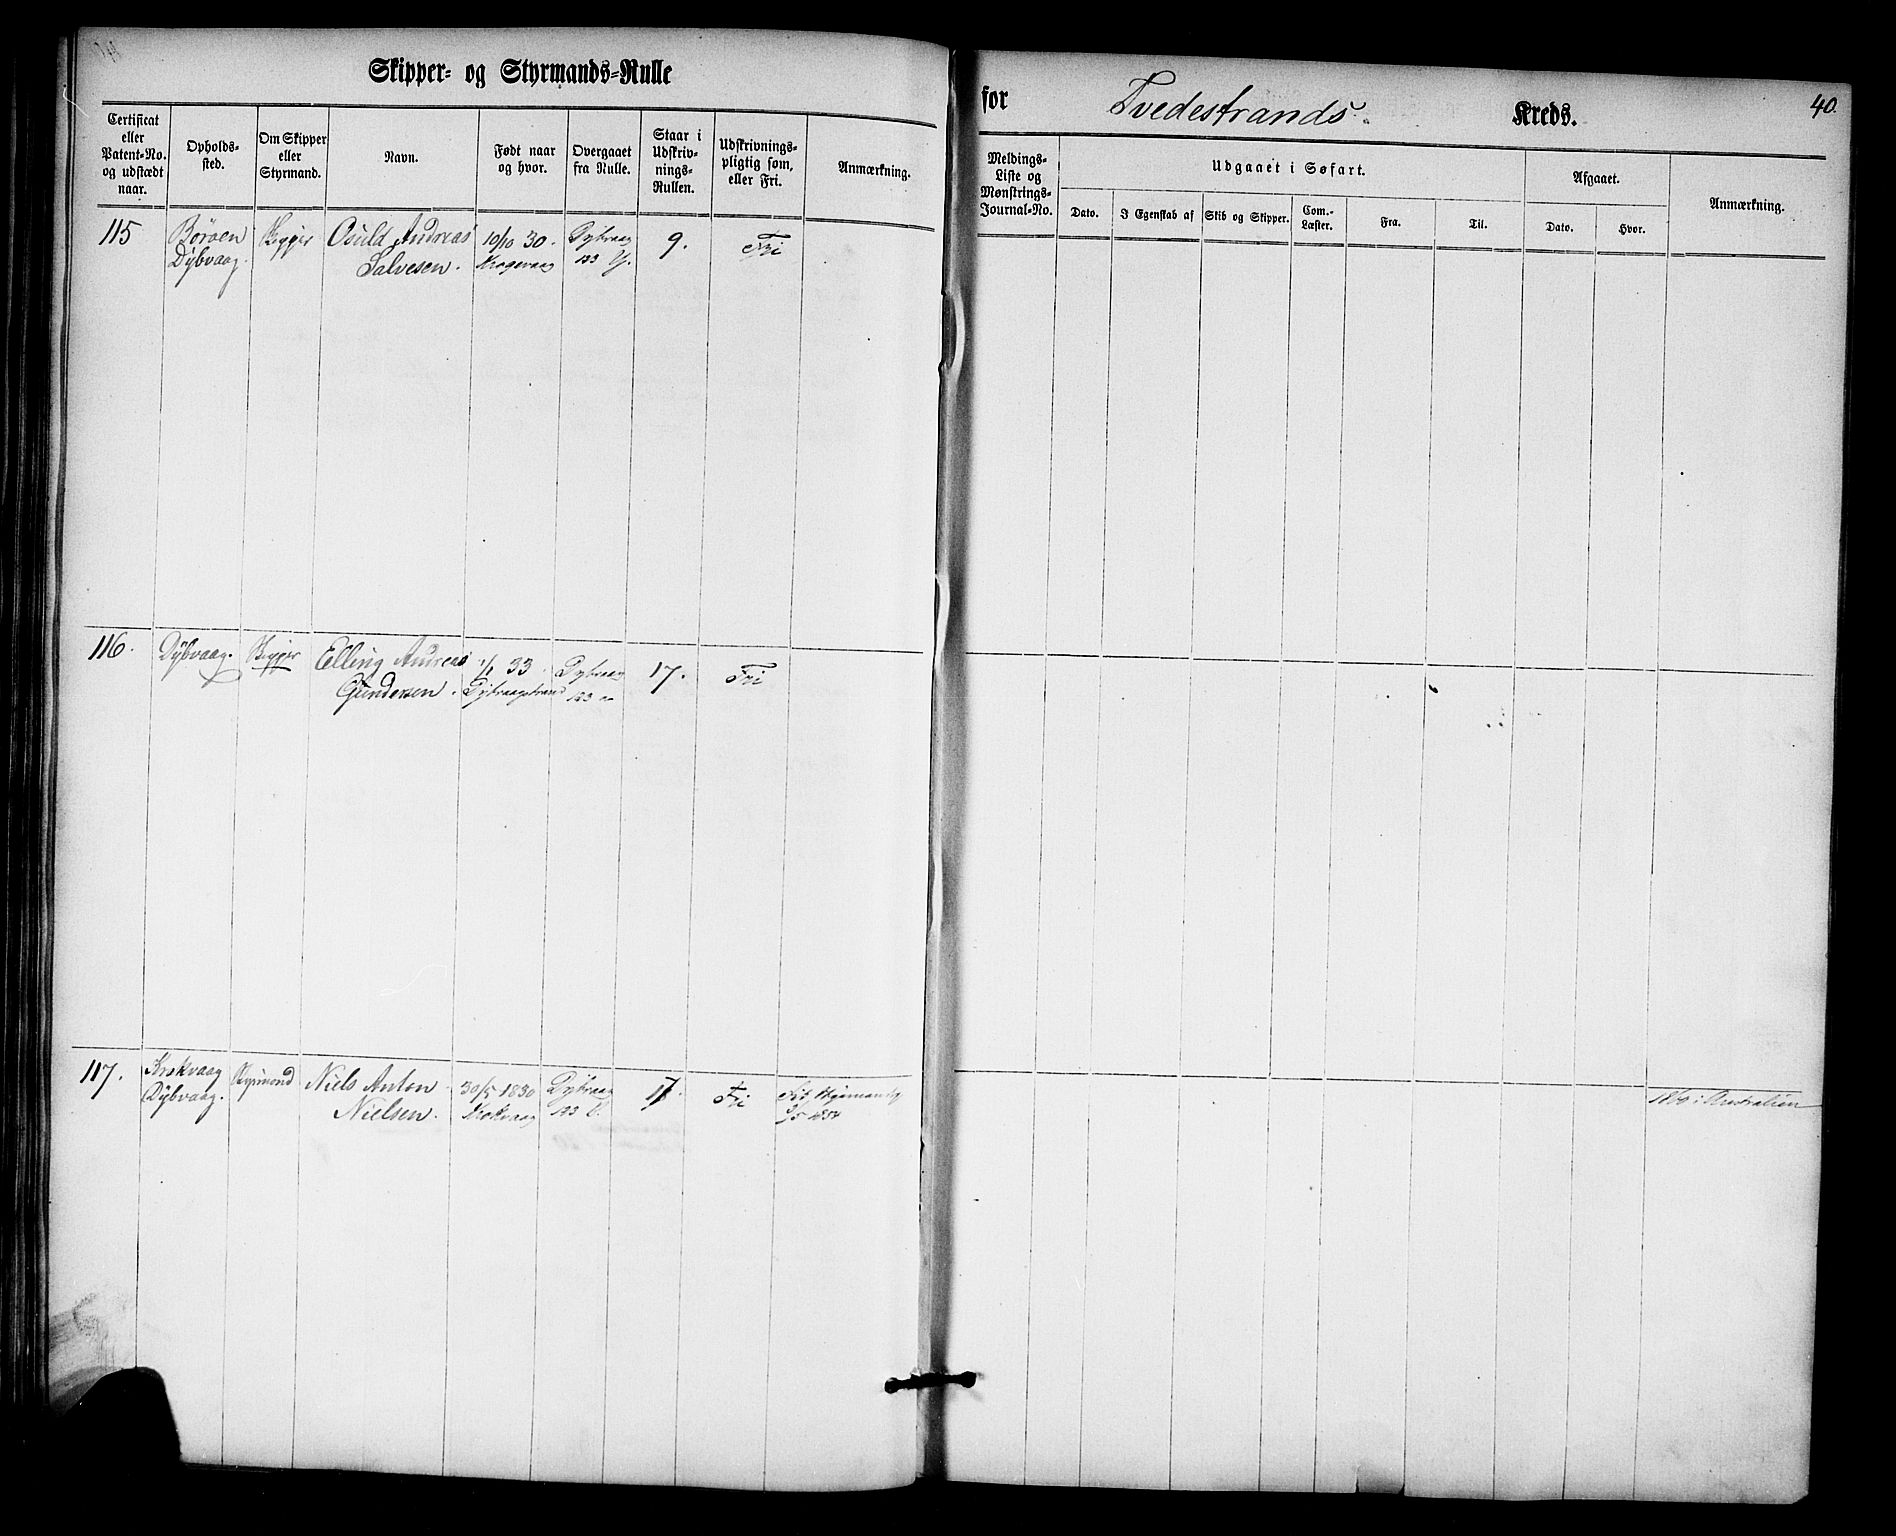 Skipper- og Styrmands-Rulle
for Tvedestrands Kreds. 40.
Certificat eller Patent-No. og udstædt naar.
Opholds-sted.
Om Skipper eller Styrmand.
Navn.
Født naar og hvor.
Overgaaet fra Rulle.
Staar i Udskriv-nings-Rullen.
Udskrivnings-pligtig som, eller Fri.
Anmærkning.
Meldings-Liste og Mønstrings-Journal-No.
Udgaaet i Søfart.
Dato.
I Egenskab af
Skib og Skipper.
Com.-Læster.
Fra.
Til.
Afgaaet.
Dato.
Hvor.
Anmærkning.
115 Børøen Skipper Osuld Andreas 10/10 30. Dybvaag 9. Fri
Dybvaag. Salvesen. Krogevaag 123
116. Dybvaag. Skipper Elling Andreas 1/1 33. Dybvaag 17. Fri
Gundersen. Dybvaagstrand 123
117. Krokvaag Styrmand Niels Anton 30/5 1830 Dybvaag 17. Fri
Dybvaag. Nielsen. Krokvaag 123 1854
1860 i Australien